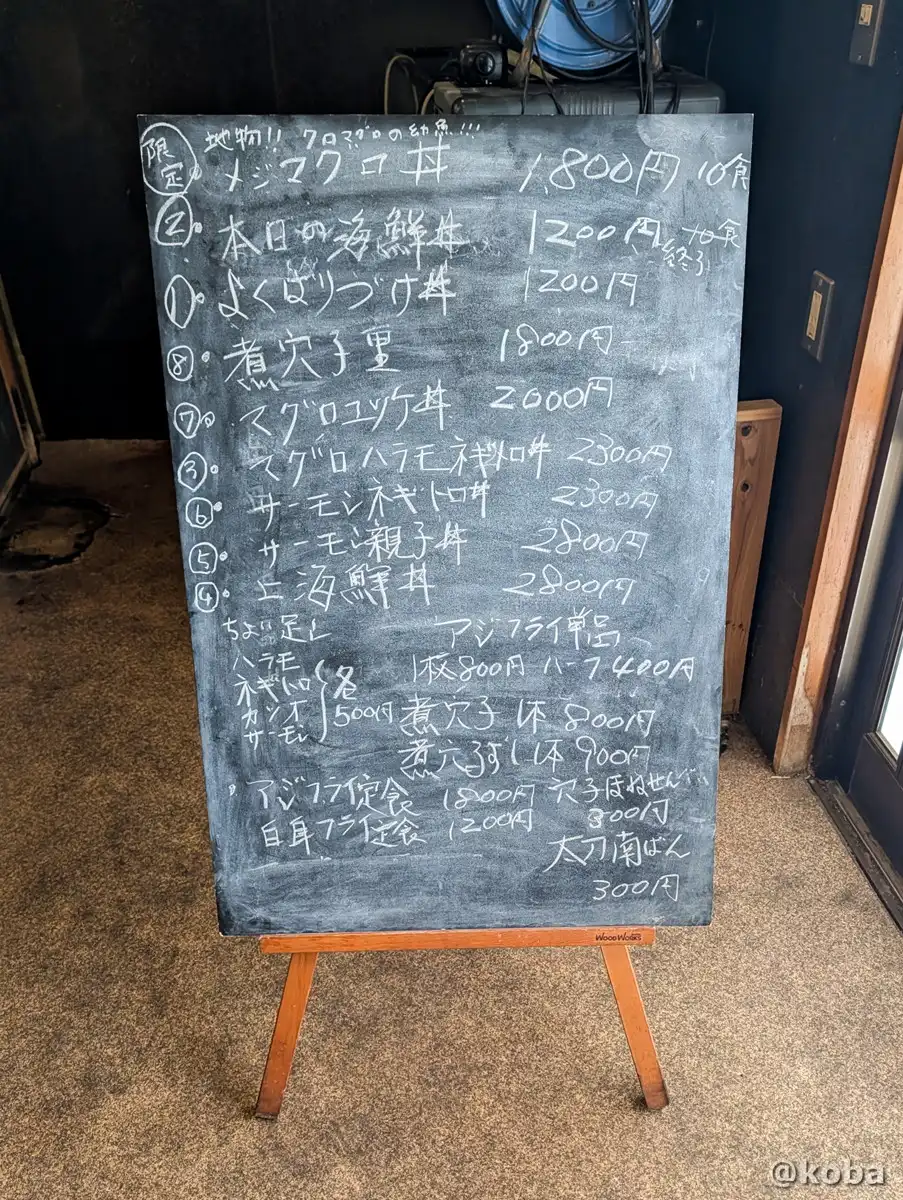 限定 地物!! クロマグロの幼魚!!!
メジマグロ丼 1,800円 10食
②。 本日の海鮮丼 1200円 10食
終了
①。 よくばりづけ丼 1200円
⑧。 煮穴子重 1800円
⑦。 マグロユッケ丼 2000円
③。 マグロハラモネギトロ丼 2300円
⑥。 サーモンネギトロ丼 2300円
⑤。 サーモン親子丼 2800円
④。 上海鮮丼 2800円
ちょい足し アジフライ単品
ハラモ 1枚800円 ハーフ400円
ネギトロ 各
カツオ 500円 煮穴子 1本 800円
サーモン
煮穴子ずし1本 900円
アジフライ定食 1800円 穴子ほねせんべい
自身フライ定食 1200円 300円
太刀南ばん
300円
WOOD WORKS
@koba